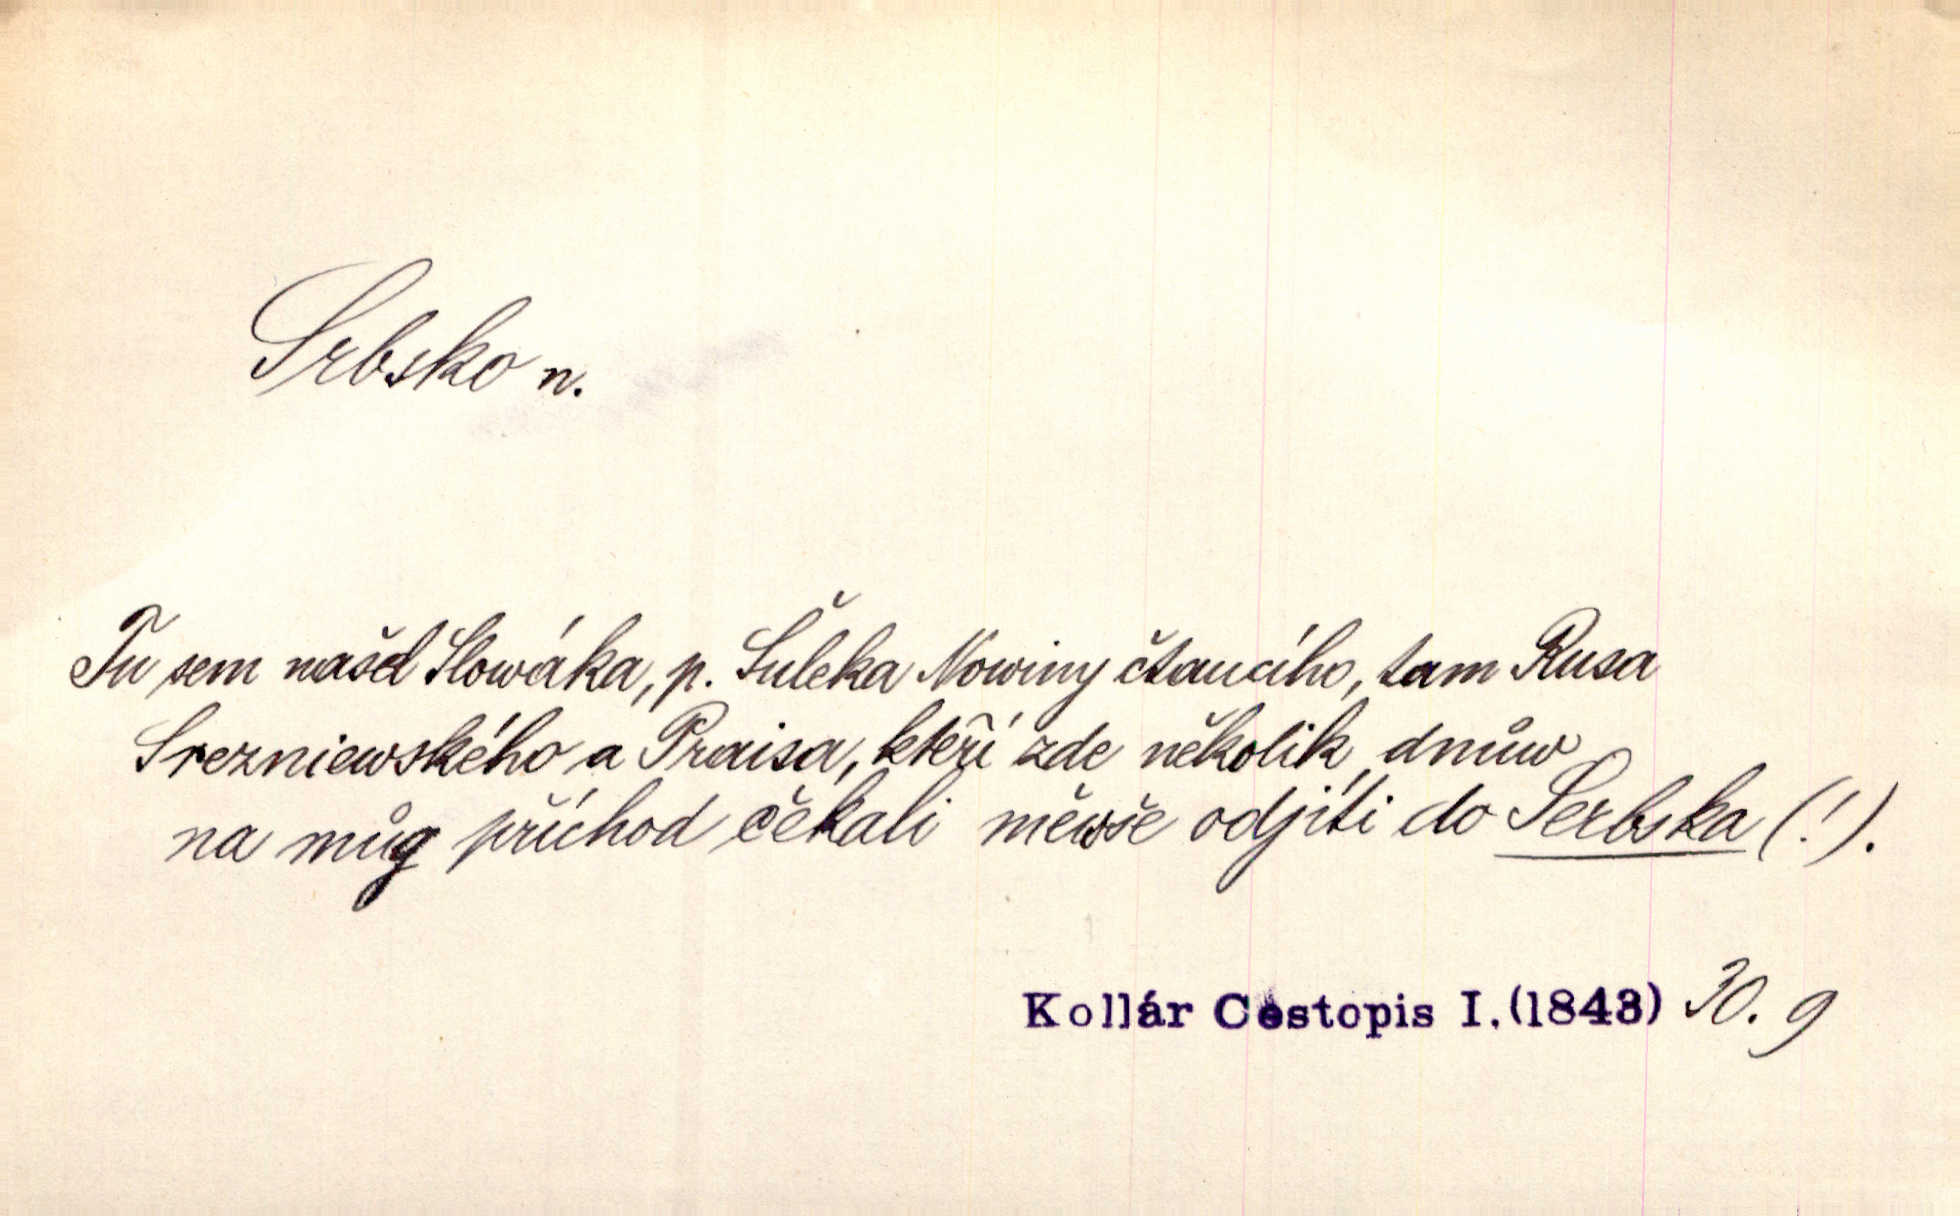 Srbsko n.
Tu sem našel Slowáka, p. Šuleka Nowiny čtaucího, tam Rusa
Srezniewského a Praisa, kteří zde několik dnůw
na můg příchod čekali měwše odjíti do Serbska (!).
Kollár Cestopis I. (1843) 30. 9